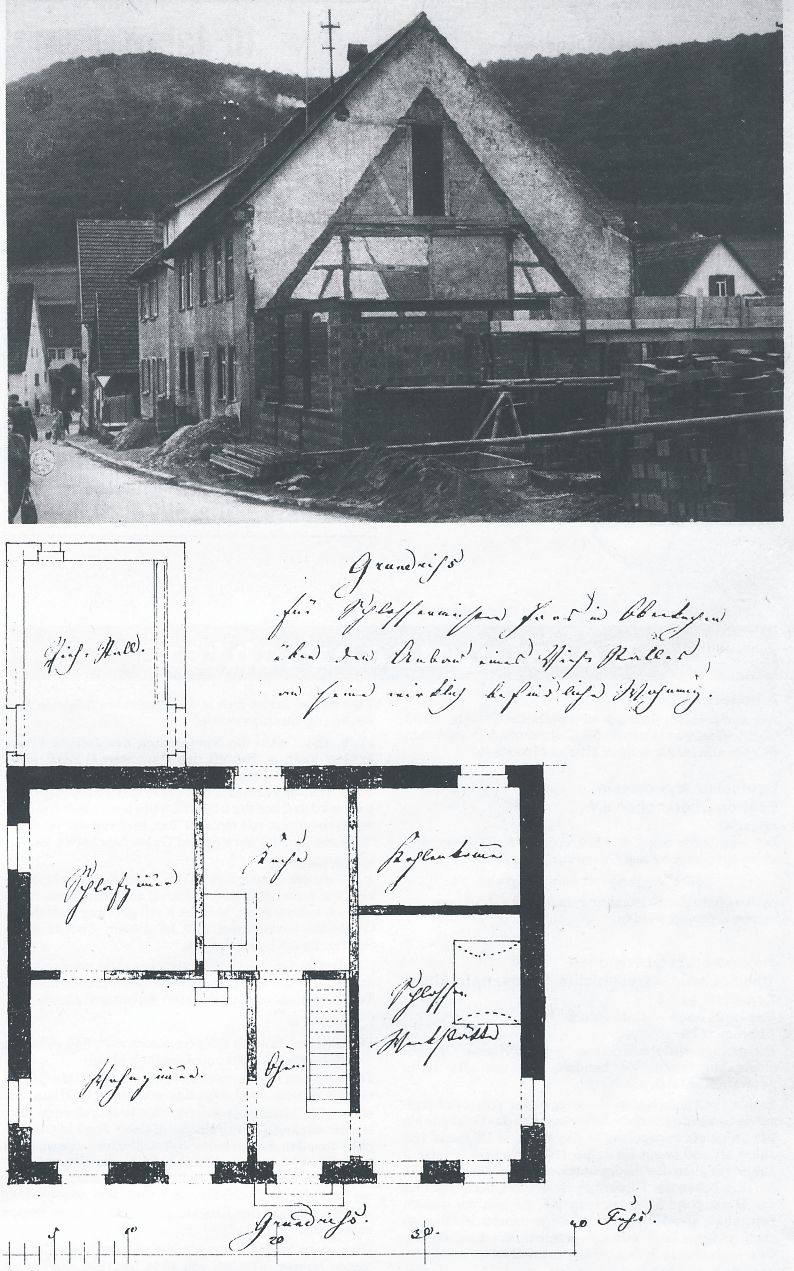 Grundriß
für Schlossermeister Haas in Oberkochen
über den Anbau eines Vieh-Stalles
an seine wirklich befindliche Wohnung.
Vieh-Stall.
Schlafzimmer
Küche
Kohlenkammer.
Schlosser
Werkstätte.
Wohnzimmer.
Öhrn.
Grundriß.
5 10 20 30. 40 Fuß.